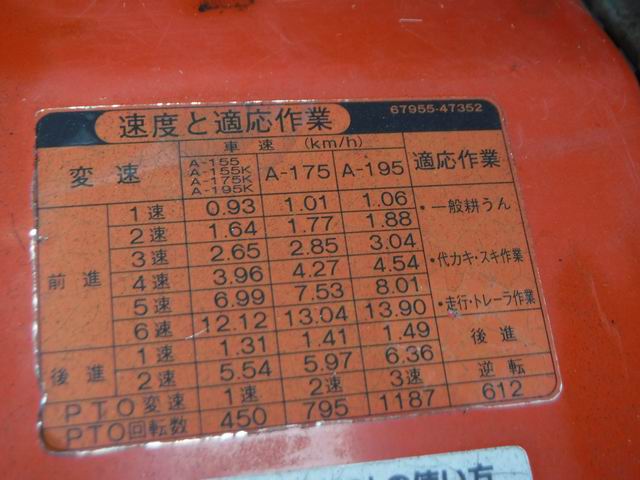 67955-47352
速度と適応作業
変速 車速 (km/h) 適応作業
A-155 A-155K A-175K A-195K A-175 A-195
前進 1速 0.93 1.01 1.06 ・一般耕うん
2速 1.64 1.77 1.88
3速 2.65 2.85 3.04 ・代カキ・スキ作業
4速 3.96 4.27 4.54
5速 6.99 7.53 8.01 ・走行・トレーラ作業
6速 12.12 13.04 13.90
後進 1速 1.31 1.41 1.49 後進
2速 5.54 5.97 6.36
PTO変速 1速 2速 3速 逆転
PTO回転数 450 795 1187 612
の使い方